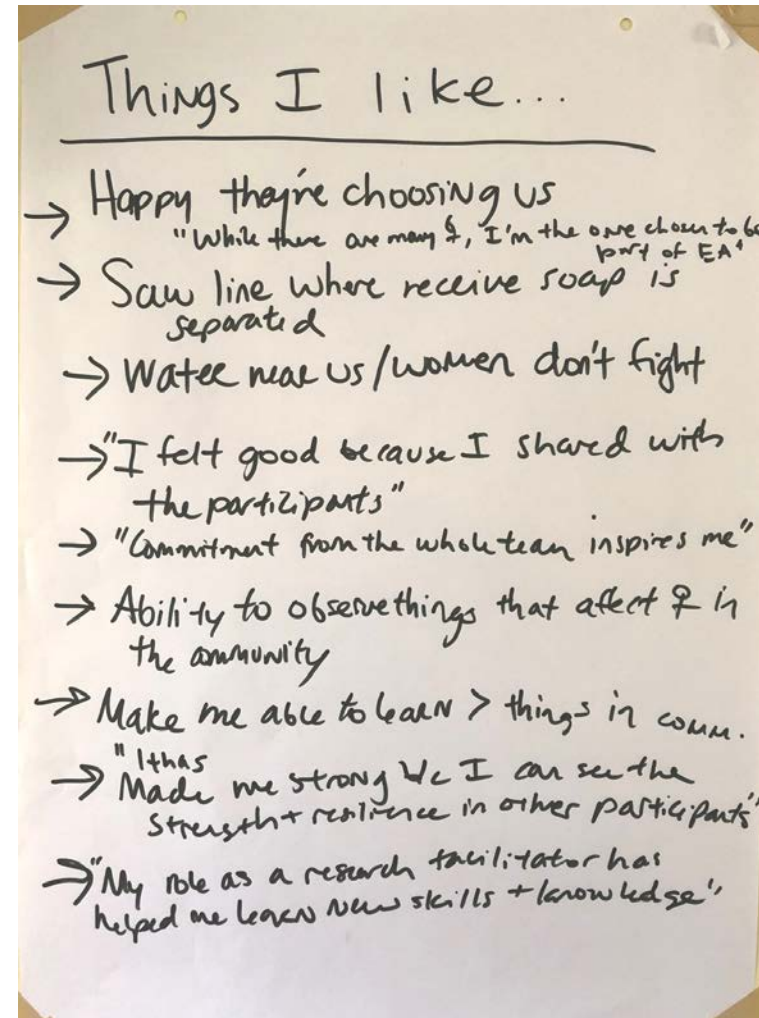 Things I like...
→ Happy they're choosing us
"While there are many ♀, I'm the one chosen to be
part of EA"
→ Saw line where receive soap is
separated
→ Water near us/women don't fight
→ "I felt good because I shared with
the participants"
→ "Commitment from the whole team inspires me"
→ Ability to observe things that affect ♀ in
the community
→ Make me able to learn > things in comm.
"It has
→ Made me strong b/c I can see the
strength + resilience in other participants"
→ "My role as a research facilitator has
helped me learn new skills + knowledge"